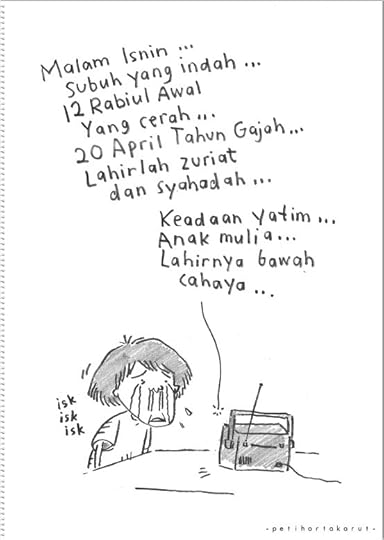 Malam Isnin...
Subuh yang indah...
12 Rabiul Awal
Yang cerah...
20 April Tahun Gajah...
Lahirlah zuriat
dan syahadah...
Keadaan yatim...
Anak mulia...
Lahirnya bawah
cahaya...
isk
isk
isk
-petihartakarut-